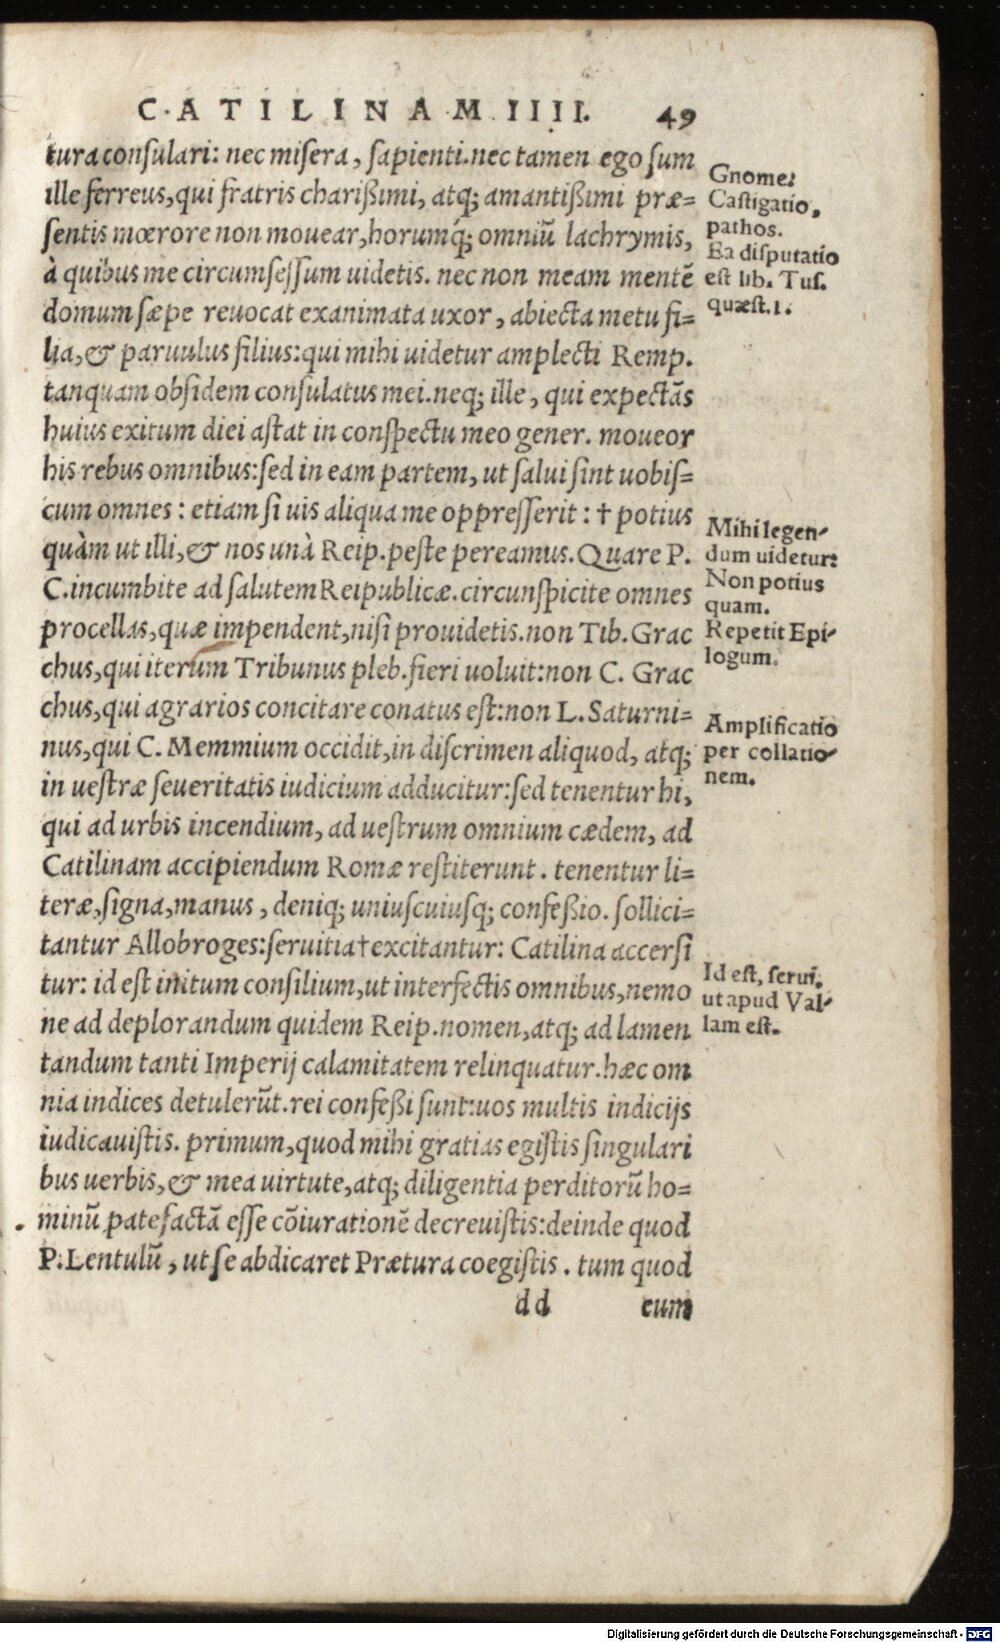 C. ATILINAM IIII. 49
tura consulari: nec misera, sapienti. nec tamen ego sum
ille ferreus, qui fratris charißimi, atq; amantißimi præ=
sentis mœrore non mouear, horumq́; omniũ lachrymis,
à quibus me circumsessum uidetis. nec non meam mentẽ
domum sæpe reuocat exanimata uxor, abiecta metu fi=
lia, & paruulus filius: qui mihi uidetur amplecti Remp.
tanquam obsidem consulatus mei. neq; ille, qui expectãs
huius exitum diei astat in conspectu meo gener. moueor
his rebus omnibus: sed in eam partem, ut salui sint uobis=
cum omnes: etiam si uis aliqua me oppresserit: † potius
quàm ut illi, & nos unà Reip. peste pereamus. Quare P.
C. incumbite ad salutem Reipublicæ. circunspicite omnes
procellas, quæ impendent, nisi prouidetis. non Tib. Grac
chus, qui iterum Tribunus pleb. fieri uoluit: non C. Grac
chus, qui agrarios concitare conatus est: non L. Saturni=
nus, qui C. Memmium occidit, in discrimen aliquod, atq;
in uestræ seueritatis iudicium adducitur: sed tenentur hi,
qui ad urbis incendium, ad uestrum omnium cædem, ad
Catilinam accipiendum Romæ restiterunt. tenentur li=
teræ, signa, manus, deniq; uniuscuiusq; confeßio. sollici=
tantur Allobroges: seruitia † excitantur: Catilina accersi
tur: id est initum consilium, ut interfectis omnibus, nemo
ne ad deplorandum quidem Reip. nomen, atq; ad lamen
tandum tanti Imperij calamitatem relinquatur. hæc om
nia indices detulerũt. rei confeßi sunt: uos multis indicijs
iudicauistis. primum, quod mihi gratias egistis singulari
bus uerbis, & mea uirtute, atq; diligentia perditorũ ho=
minũ patefactã esse cõiurationẽ decreuistis: deinde quod
P. Lentulũ, ut se abdicaret Prætura coegistis. tum quod
dd cum
Gnome:
Castigatio,
pathos.
Ea disputatio
est lib. Tus.
quæst. 1.
Mihi legen-
dum uidetur:
Non potius
quam.
Repetit Epi-
logum.
Amplificatio
per collatio-
nem.
Id est, serui.
ut apud Val-
lam est.
Digitalisierung gefördert durch die Deutsche Forschungsgemeinschaft - DFG